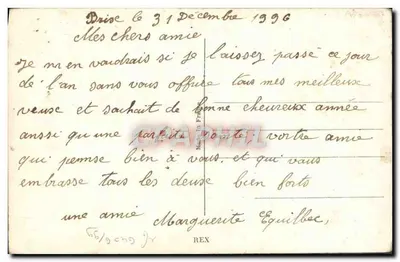 Brise le 31 Décembre 1996
Mes chers amie
Je m en vaudrais si je laissez passé ce jour
de l'an sans vous offrire tous mes meilleux
veuse et sachait de bonne cheureux année
anssi qu une parfaite santé vortre amie
qui pemse bien à vous, et qui vous
embrasse tous les deuse bien forts
une amie Marguerite Equilbec,
REX